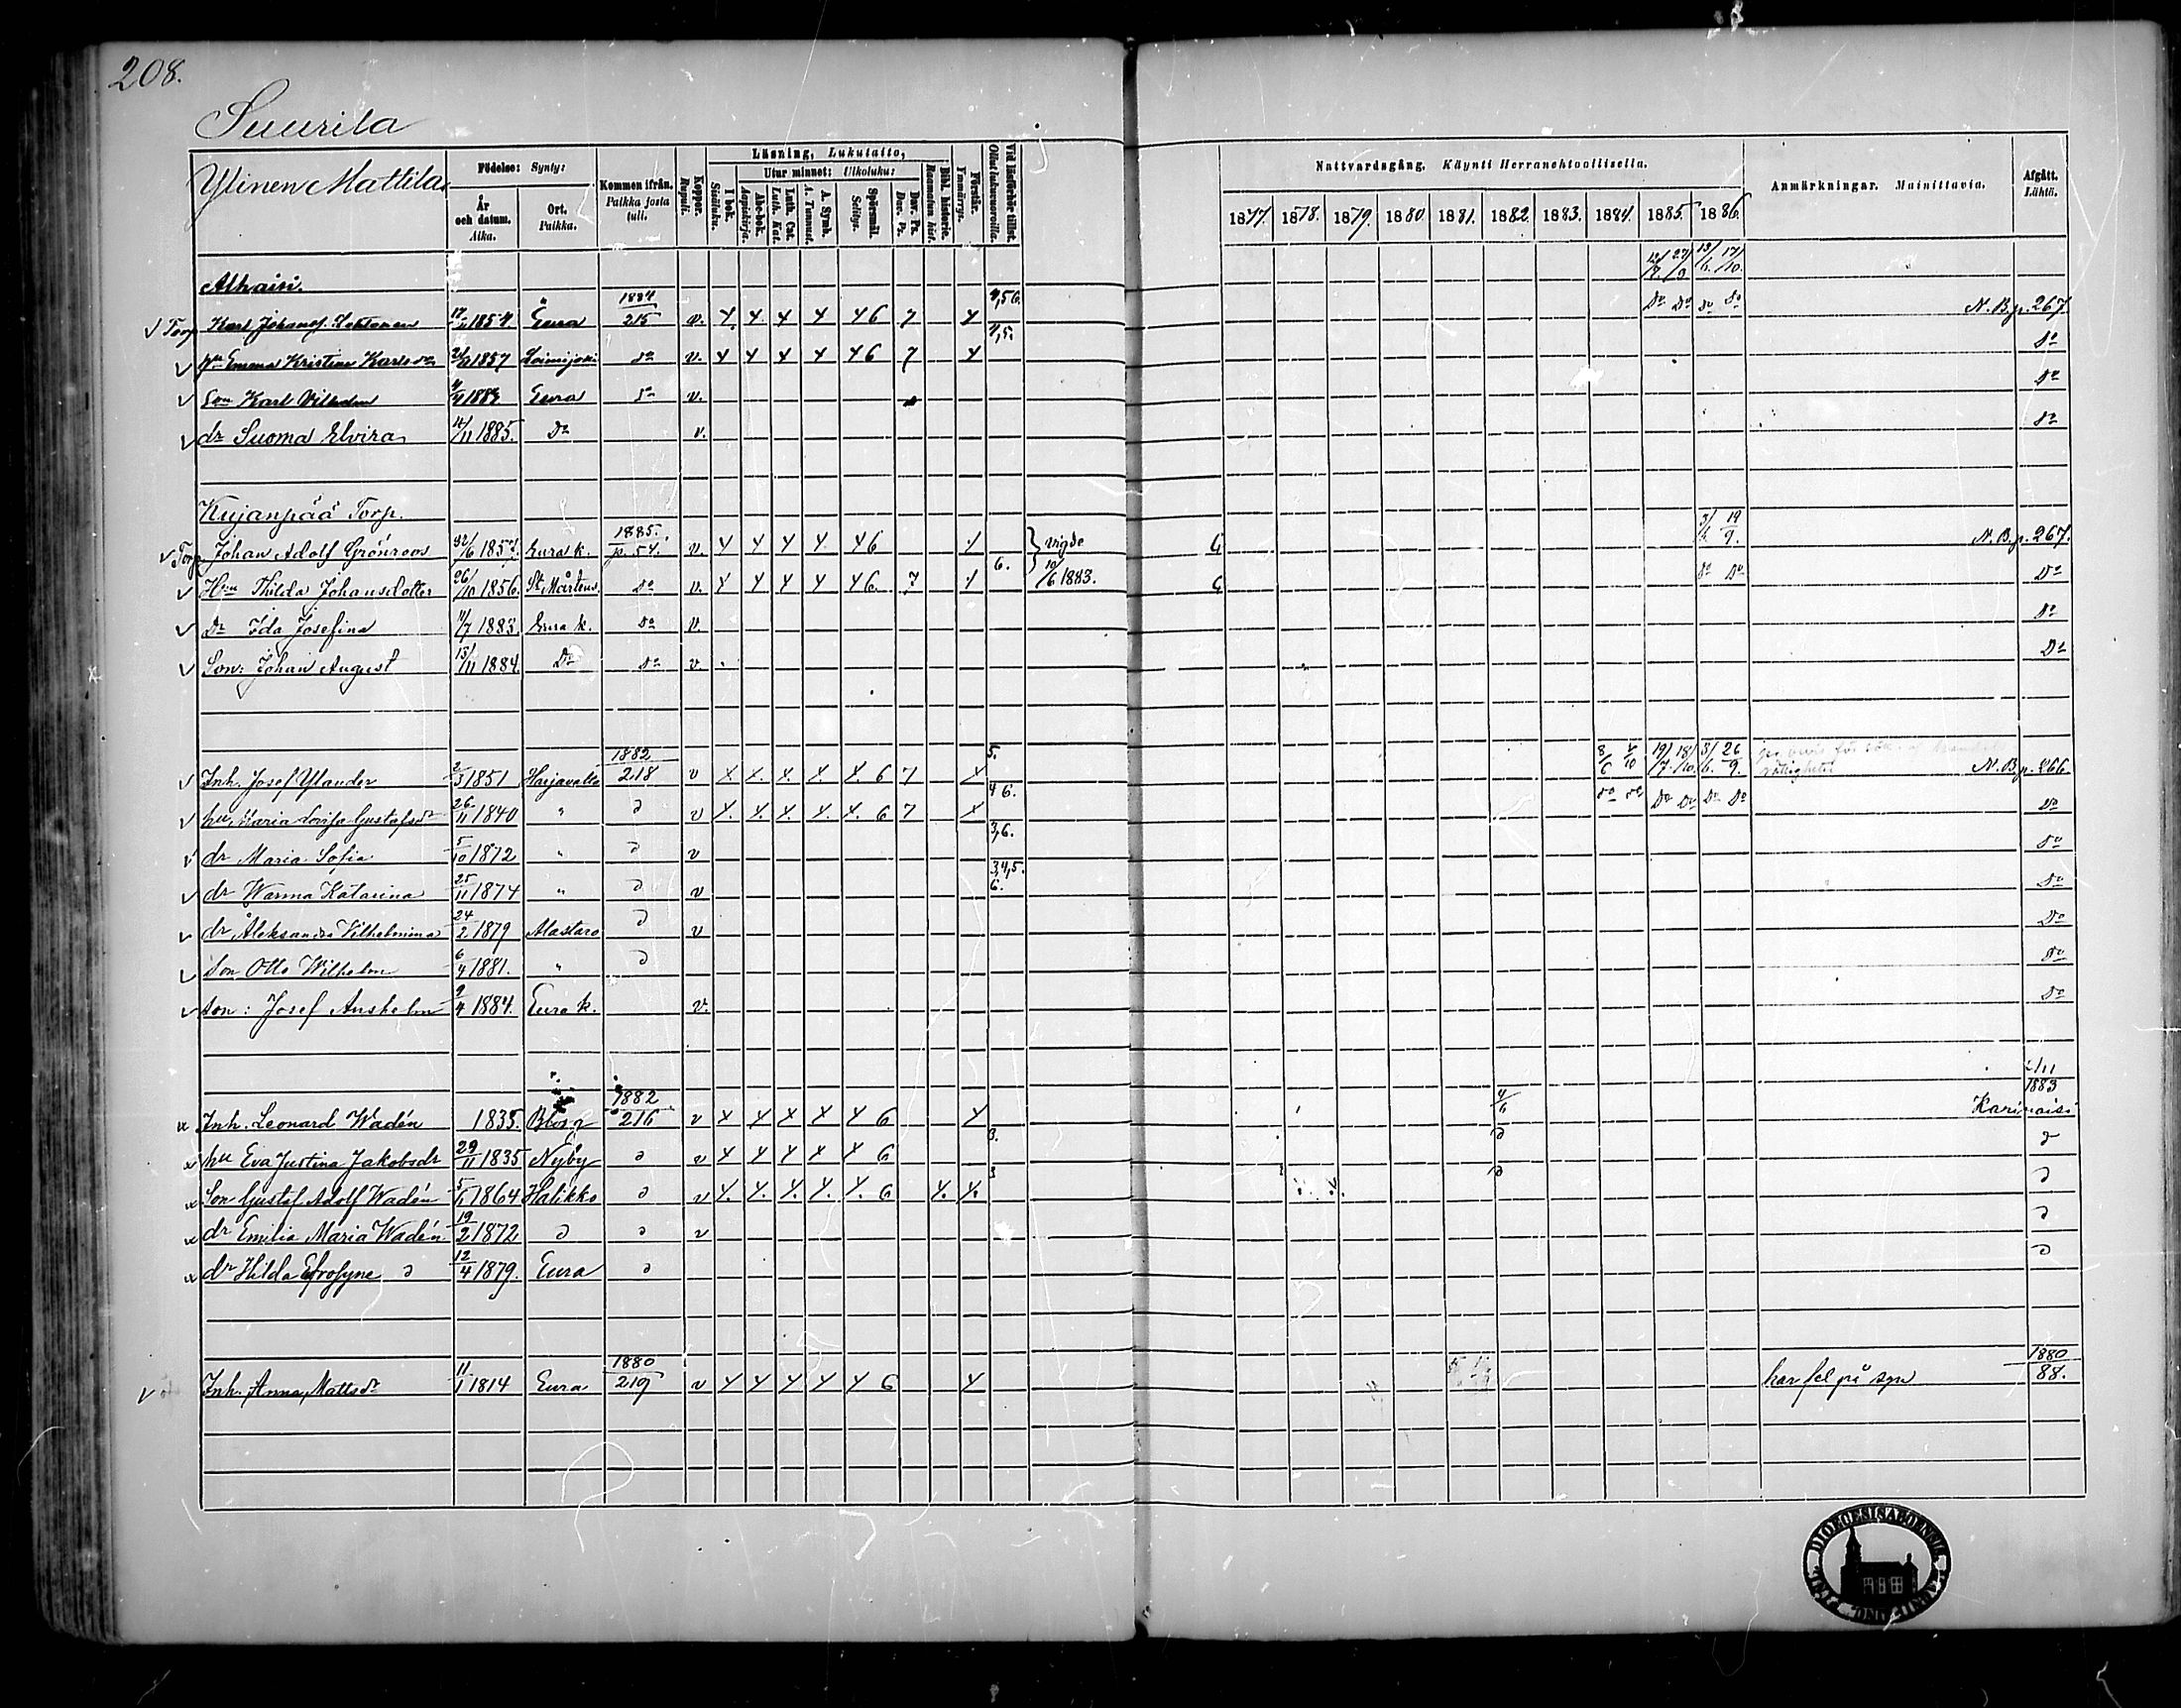 208.
Suurila
Ylinen Mattila
Födelse: Synty:
År och datum. Aika.
Ort. Paikka.
Kommen ifrån. Paikka josta tuli.
Koppor. Rupuli.
Läsning, Lukutaito,
I bok. Sisäluku.
Utur minnet: Ulkoluku:
Abc-bok. Aapiskirja.
Luth. Cat. Luth. Kat.
A. Symb. A. Tunnust.
Spörsmål. Selitys.
Dav. Ps. Dav. Ps.
Bibl. historie. Raamatun hist.
Förstår. Ymmärrys.
Vid läsförhör tillst. Ollut lukuvuoroilla.
Nattvardsgång. Käynti Herranehtoollisella.
1877. 1878. 1879. 1880 1881. 1882. 1883. 1884. 1885. 1886.
Anmärkningar. Muistuttavia.
Afgått. Lähtö.
Alhaisi.
Torp Karl Johansf. Lehtonen 1854 Eura 1884 215 v. 4 4 4 4 4 6 7 4 N. B. p. 267
Hu Emma Kristina Karlsdr 1857 Loimijoki do v. 4 4 4 4 4 6 7 4 do
Son Karl Vilhelm 1883 Eura do v. do
dr Suoma Elvira 14/11 1885. Do v. do
Kujanpää Torp.
Torp Johan Adolf Grönroos Eura k. 1885. p. 54. v. 4 4 4 4 4 6 4 vigde G 3/6 19/9. N. B. p. 267.
Hun Hilda Johansdotter 26/10 1856 St. Mårtens do v. 4 4 4 4 4 6. 7 4 6. 10/6 1883. G do do Do
Dr Ida Josefina 11/7 1883. Eura k. do v. Do
Son: Johan August 13/11 1884. Do do v. Do
Inh. Josef Ylander 2/3 1851 Harjavalta 1882 218 v 4 4. 4. 4. 4. 6 7 4 5. 8/6 19/7. 18/10 3/6. 26/9. N. B. p. 266
hu Maria Lovisa Gustafsdr 26/11 1840 " d v 4. 4. 4. 4. 4. 6 7 4 4 6. do do Do Do Do Do Do
dr Maria Sofia 5/10 1872 " d v 3,6. do
dr Wanna Katarina 25/11 1874 " d v 3,4,5. 6. do
dr Aleksandra Vilhelmina 24/2 1879 Alastaro d v Do
Son Otto Wilhelm 6/4 1881. " d do
son: Josef Anshelm 9/4 1884. Eura k. v. do
Inh. Leonard Wadén 1835. 1882 216 v 4 4 4 4 4 6 4 4/6 1883 Karinaisi
hu Eva Justina Jakobsdr 29/11 1835 Nyby d v 4 4 4 4 4 6 3. d d
Son Gustaf Adolf Wadén 1864 Halikko d v 4. 4. 4. 4. 4. 6 4. 4. 3 d d
dr Emilia Maria Wadén 19/2 1872 d d v d
dr Hilda Efrosyne d 12/4 1879. Eura d d
Inh. Anna Mattsdr 11/1 1814 Eura 1880 219 v 4 4 4 4 4 6 4 har fel på syn 1880 88.